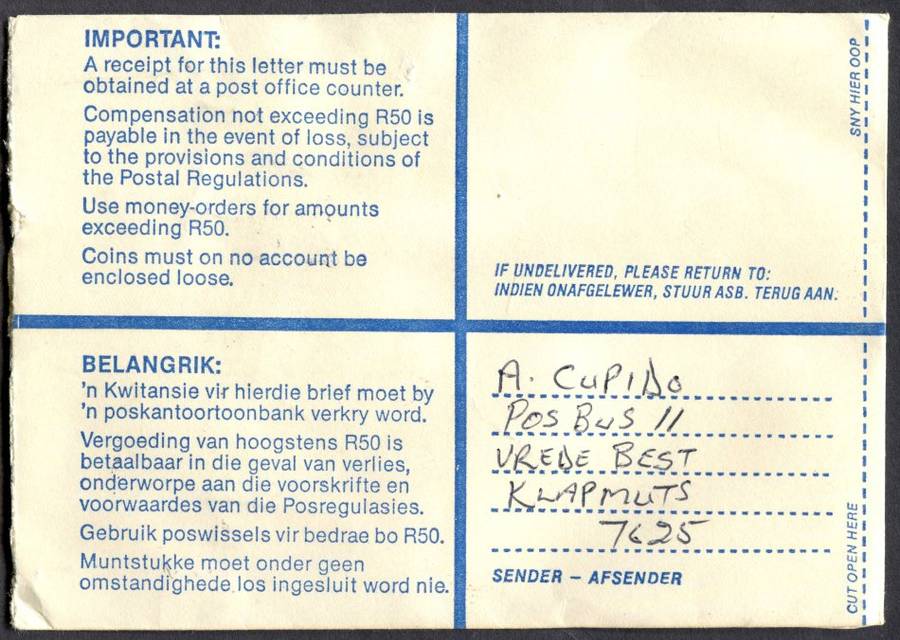 IMPORTANT:
A receipt for this letter must be
obtained at a post office counter.
Compensation not exceeding R50 is
payable in the event of loss, subject
to the provisions and conditions of
the Postal Regulations.
Use money-orders for amounts
exceeding R50.
Coins must on no account be
enclosed loose.
IF UNDELIVERED, PLEASE RETURN TO:
INDIEN ONAFGELEWER, STUUR ASB. TERUG AAN:
SNY HIER OOP
BELANGRIK:
'n Kwitansie vir hierdie brief moet by
'n poskantoortoonbank verkry word.
Vergoeding van hoogstens R50 is
betaalbaar in die geval van verlies,
onderworpe aan die voorskrifte en
voorwaardes van die Posregulasies.
Gebruik poswissels vir bedrae bo R50.
Muntstukke moet onder geen
omstandighede los ingesluit word nie.
A. CUPIDO
POS BUS 11
VREDE BEST
KLAPMUTS
7625
SENDER – AFSENDER
CUT OPEN HERE